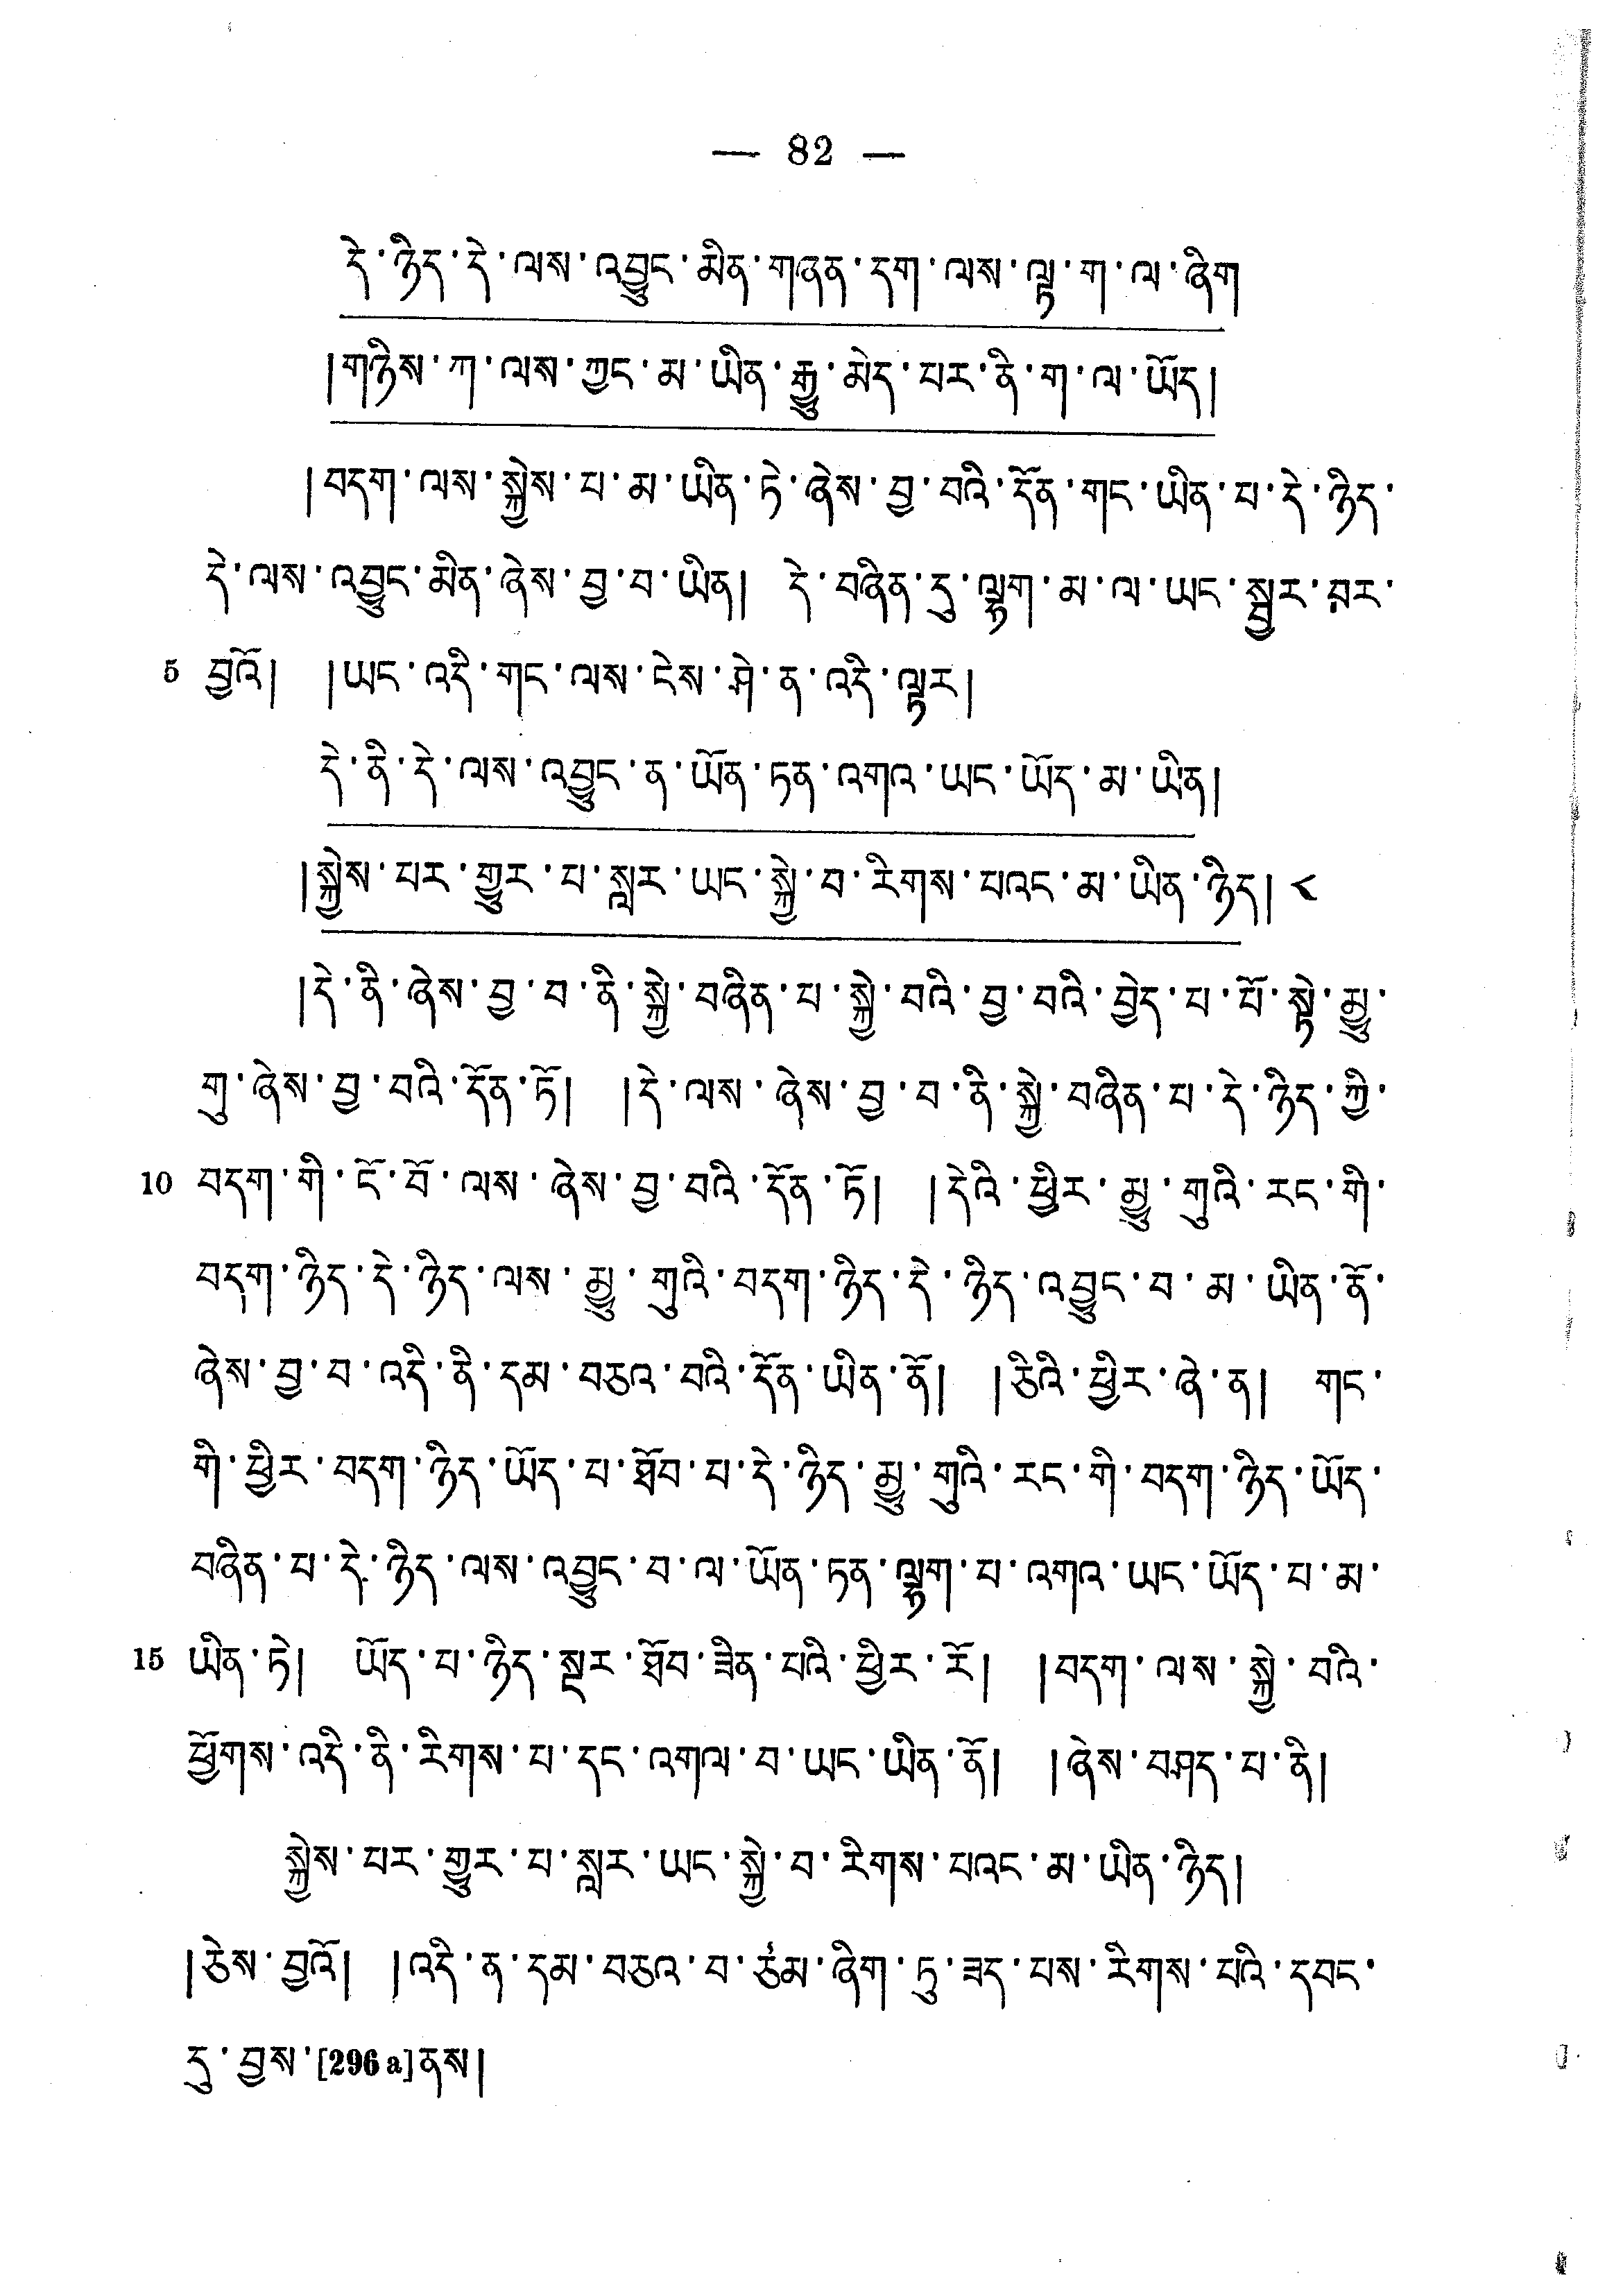 — 82 —
དེ་ཉིད་དེ་ལས་འབྱུང་མིན་གཞན་དག་ལས་ལྟ་ག་ལ་ཞིག
།གཉིས་ཀ་ལས་ཀྱང་མ་ཡིན་རྒྱུ་མེད་པར་ནི་ག་ལ་ཡོད།
།བདག་ལས་སྐྱེས་པ་མ་ཡིན་ཏེ་ཞེས་བྱ་བའི་དོན་གང་ཡིན་པ་དེ་ཉིད་
དེ་ལས་འབྱུང་མིན་ཞེས་བྱ་བ་ཡིན། དེ་བཞིན་དུ་ལྷག་མ་ལ་ཡང་སྦྱར་བར་
5 བྱའོ། །ཡང་འདི་གང་ལས་ངེས་ཤེ་ན་འདི་ལྟར།
དེ་ནི་དེ་ལས་འབྱུང་ན་ཡོན་ཏན་འགའ་ཡང་ཡོད་མ་ཡིན།
།སྐྱེས་པར་གྱུར་པ་སླར་ཡང་སྐྱེ་བ་རིགས་པའང་མ་ཡིན་ཉིད། ༨
།དེ་ནི་ཞེས་བྱ་བ་ནི་སྐྱེ་བཞིན་པ་སྐྱེ་བའི་བྱ་བའི་བྱེད་པ་པོ་སྟེ་མྱུ་
གུ་ཞེས་བྱ་བའི་དོན་ཏོ། །དེ་ལས་ཞེས་བྱ་བ་ནི་སྐྱེ་བཞིན་པ་དེ་ཉིད་ཀྱི་
10 བདག་གི་ངོ་བོ་ལས་ཞེས་བྱ་བའི་དོན་ཏོ། །དེའི་ཕྱིར་མྱུ་གུའི་རང་གི་
བདག་ཉིད་དེ་ཉིད་ལས་མྱུ་གུའི་བདག་ཉིད་དེ་ཉིད་འབྱུང་བ་མ་ཡིན་ནོ་
ཞེས་བྱ་བ་འདི་ནི་དམ་བཅའ་བའི་དོན་ཡིན་ནོ། །ཅིའི་ཕྱིར་ཞེ་ན། གང་
གི་ཕྱིར་བདག་ཉིད་ཡོད་པ་ཐོབ་པ་དེ་ཉིད་མྱུ་གུའི་རང་གི་བདག་ཉིད་ཡོད་
བཞིན་པ་དེ་ཉིད་ལས་འབྱུང་བ་ལ་ཡོན་ཏན་ལྷག་པ་འགའ་ཡང་ཡོད་པ་མ་
15 ཡིན་ཏེ། ཡོད་པ་ཉིད་སྔར་ཐོབ་ཟིན་པའི་ཕྱིར་རོ། །བདག་ལས་སྐྱེ་བའི་
ཕྱོགས་འདི་ནི་རིགས་པ་དང་འགལ་བ་ཡང་ཡིན་ནོ། །ཞེས་བཤད་པ་ནི།
སྐྱེས་པར་གྱུར་པ་སླར་ཡང་སྐྱེ་བ་རིགས་པའང་མ་ཡིན་ཉིད།
།ཅེས་བྱའོ། །འདི་ན་དམ་བཅའ་བ་ཙམ་ཞིག་ཏུ་ཟད་པས་རིགས་པའི་དབང་
དུ་བྱས་[296 a]ནས།